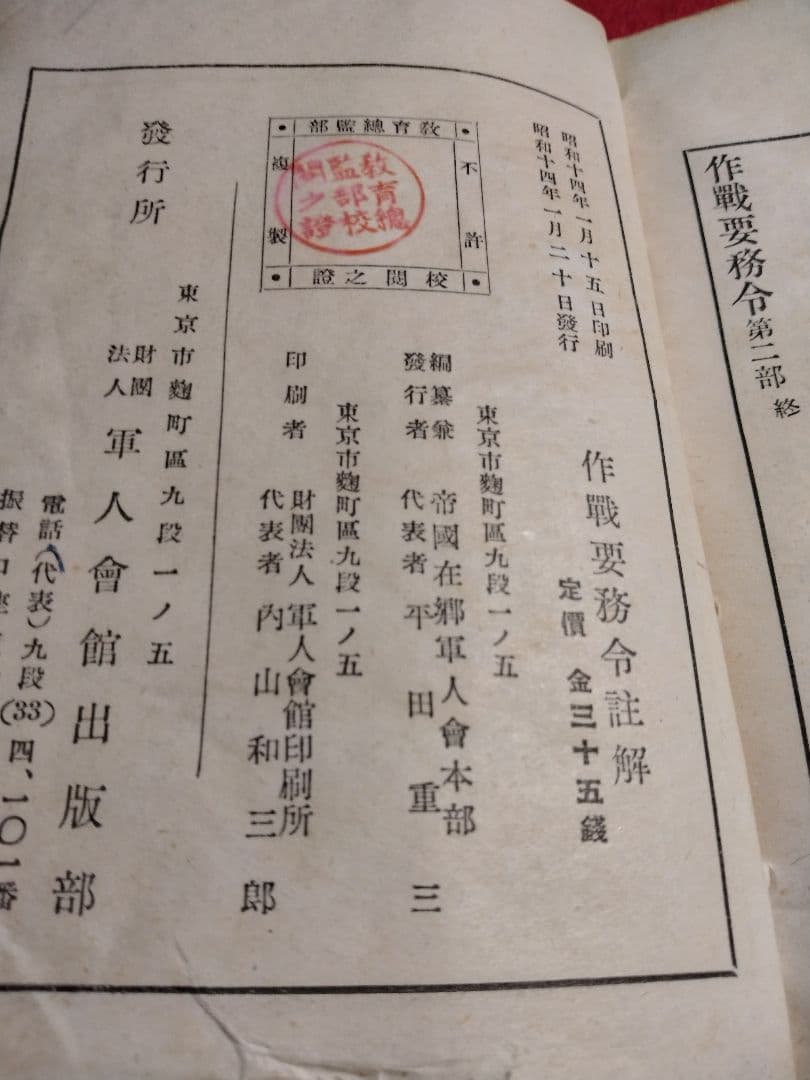 作戰要務令第二部 終
昭和十四年一月十五日印刷
昭和十四年一月二十日發行
不許
複製
教育總監部
校閲之證
教育總
監部校
閲之證
作戰要務令註解
定價 金三十五錢
東京市麴町區九段一ノ五
編纂兼
發行者
帝國在鄕軍人會本部
代表者 平田重三
東京市麴町區九段一ノ五
印刷者
財團法人 軍人會館印刷所
代表者 內山和三郎
發行所
東京市麴町區九段一ノ五
財團
法人
軍人會館出版部
電話(代表)九段(33)四、一〇一番
振替口座